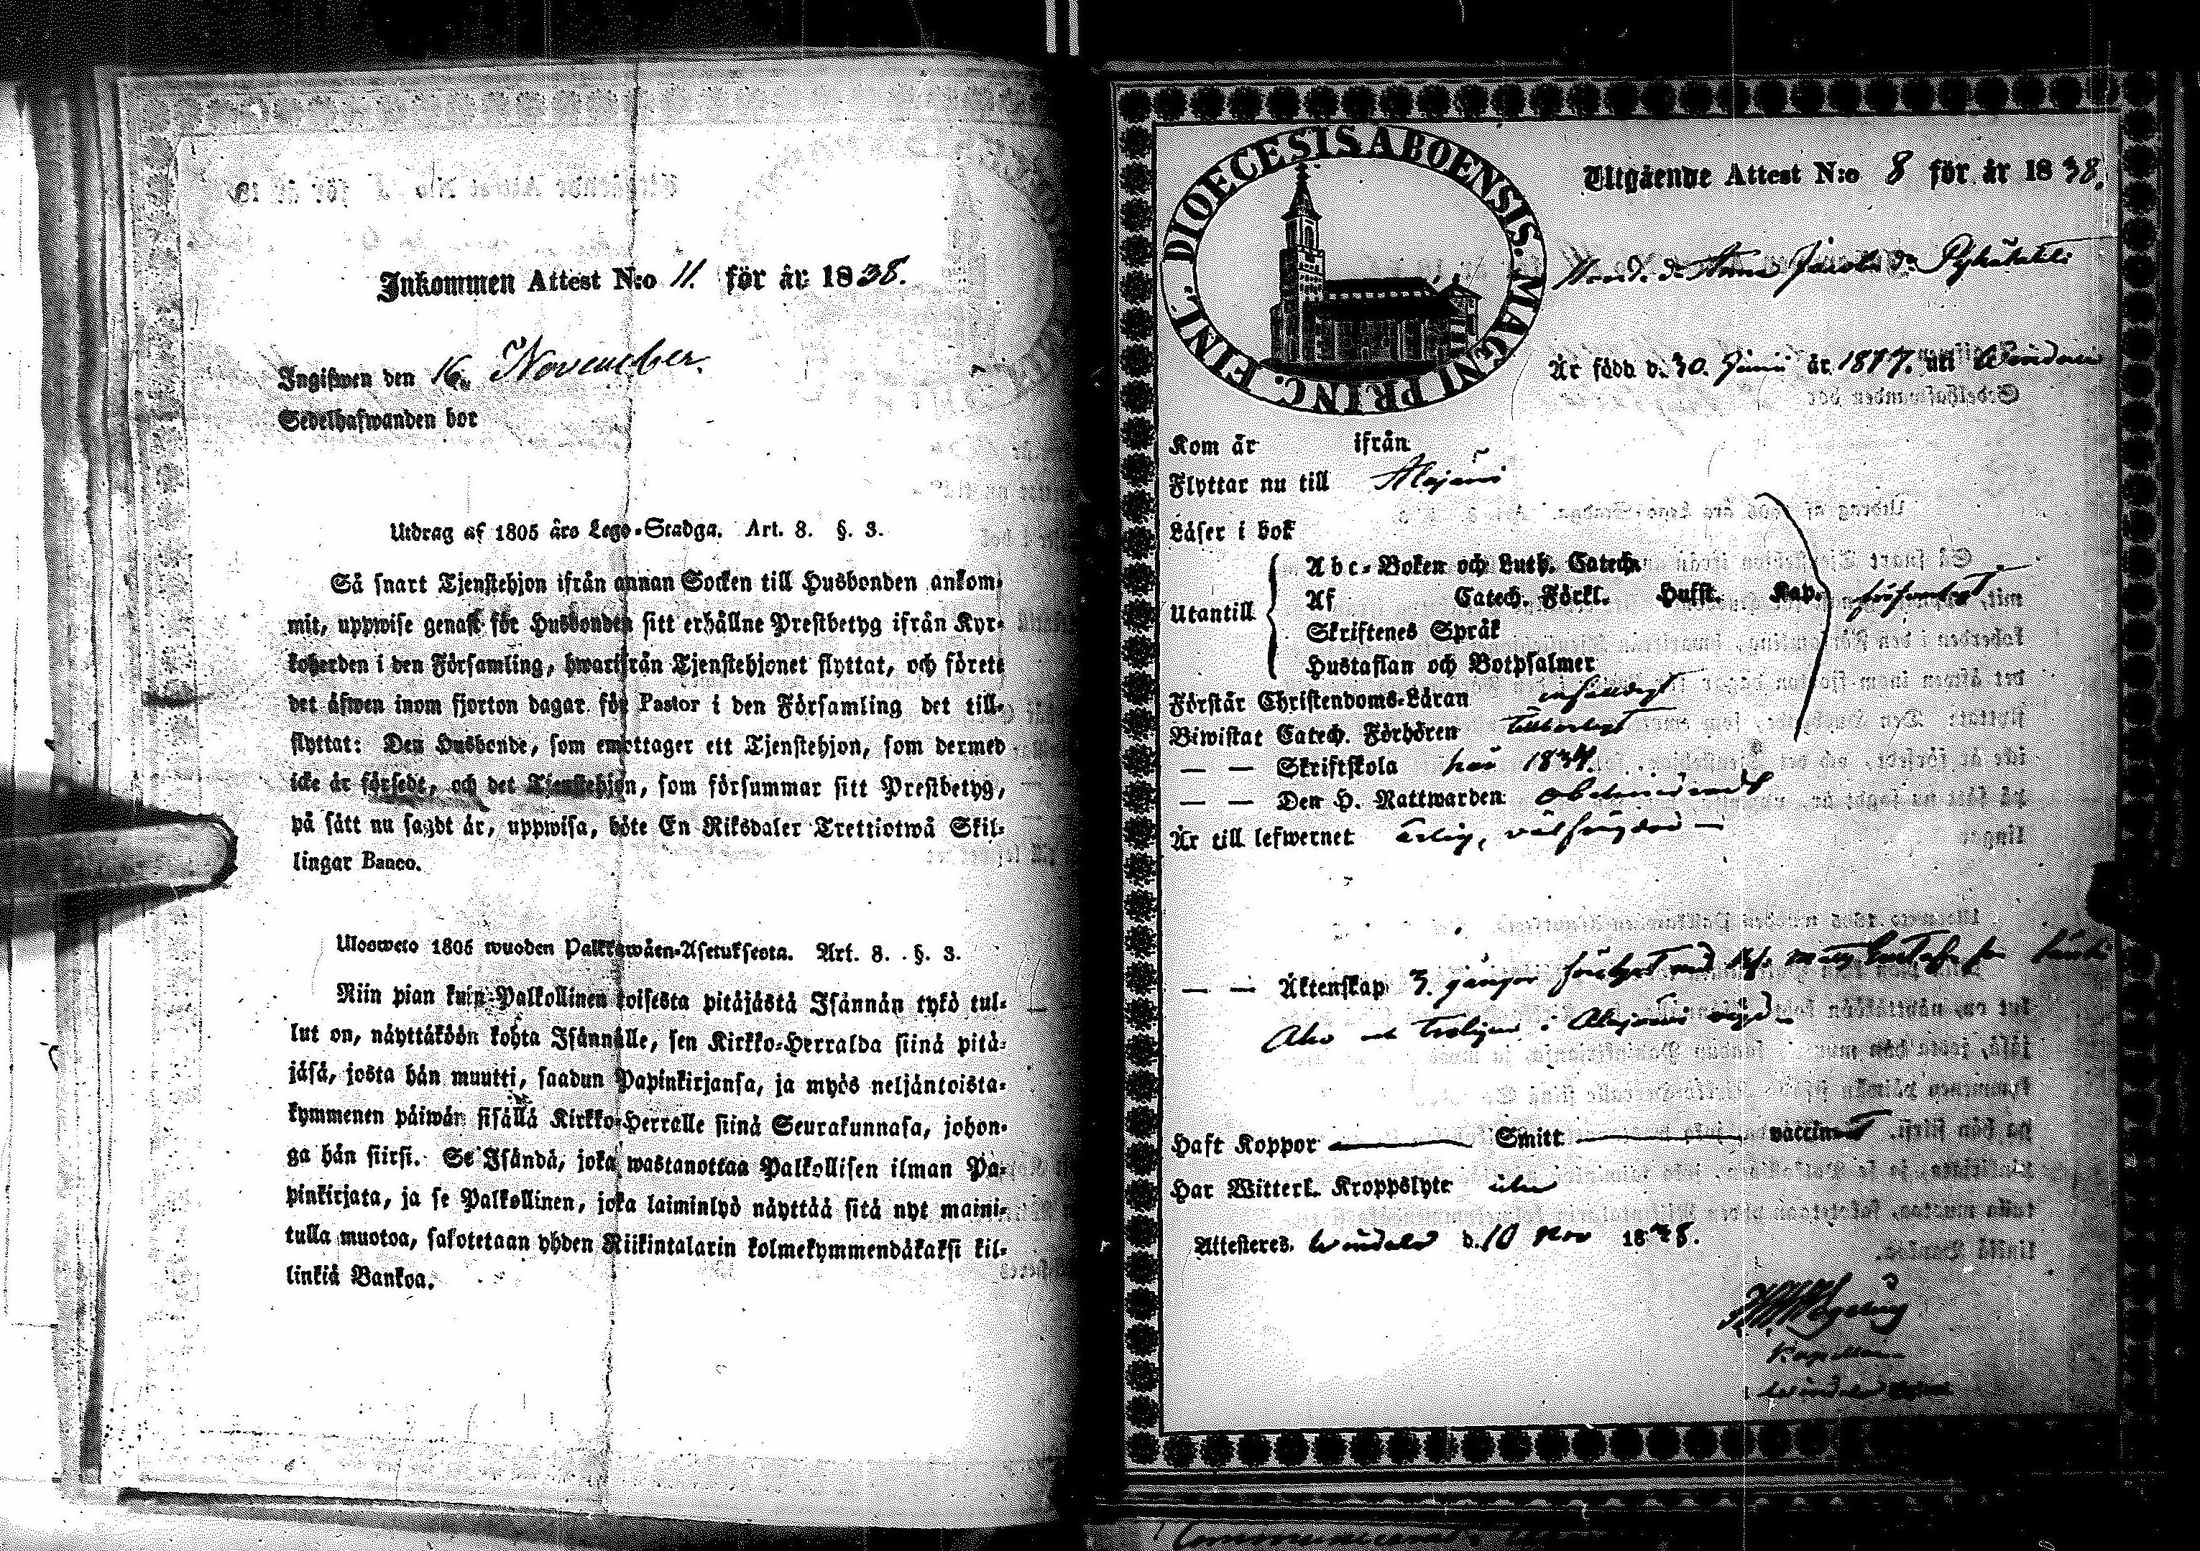 Inkommen Attest N:o 11. för år 1838.
Ingifwen den 16. November.
Sedelhafwanden bor
Utdrag af 1805 års Lego-Stadga. Art. 8. §. 3.
Så snart Tjenstehjon ifrån annan Socken till Husbonden ankom-
mit, uppwise genast för Husbonden sitt erhållne Prestbetyg ifrån Kyr-
koherden i den Församling, hwarifrån Tjenstehjonet flyttat, och förete
det äfwen inom fjorton dagar för Pastor i den Församling det till-
flyttat: Den Husbonde, som emottager ett Tjenstehjon, som dermed
icke är försedt, och det Tjenstehjon, som försummar sitt Prestbetyg,
på sätt nu sagdt är, uppwisa, böte En Riksdaler Trettiotwå Skil-
lingar Banco.
Ulosweto 1805 wuoden Palkkawäen-Asetuksesta. Art. 8. §. 3.
Niin pian kuin Palkollinen toisesta pitäjästä Isännän tykö tul-
lut on, näyttäköön kohta Isännälle, sen Kirkko-Herralda siinä pitä-
jäsä, josta hän muutti, saadun Papinkirjansa, ja myös neljäntoista-
kymmenen päiwän sisällä Kirkko-Herralle siinä Seurakunnasa, johon-
ga hän siirsi. Se Isändä, joka wastanottaa Palkollisen ilman Pa-
pinkirjata, ja se Palkollinen, joka laiminlyö näyttää sitä nyt maini-
tulla muotoa, sakotetaan yhden Riikintalarin kolmekymmendäkaksi kil-
linkiä Bankoa.
DIOECESIS ABOENSIS. MAGNI PRINC. FINL.
Utgående Attest N:o 8 för år 1838.
Bond. d. Anna Jacobs dr
Är född d. 30. Junii år 1817. uti Windala
Kom år ifrån
Flyttar nu till Alajärvi
Läser i bok
Utantill
Abc-Boken och Luth. Catech.
Af Catech. Förkl. Hufst. Kap. försvarligt
Skriftenes Språk
Hustaflan och Botpsalmer
Förstår Christendoms-Läran enfaldigt
Biwistat Catech. Förhören tillbörligt
— — Skriftskola här 1834.
— — Den H. Nattwarden obehindrad
Är till lefwernet ärlig, välfrägdad —
— — Äktenskap 3. gånger förelyst med Matts Gustafsson
Aho i Alajärvi
Haft Koppor — Smitt — vaccinerad
Har Witterl. Kroppslyte utan
Attesteres. Windala d. 10 Nov 1838.
Kapellan
Windala